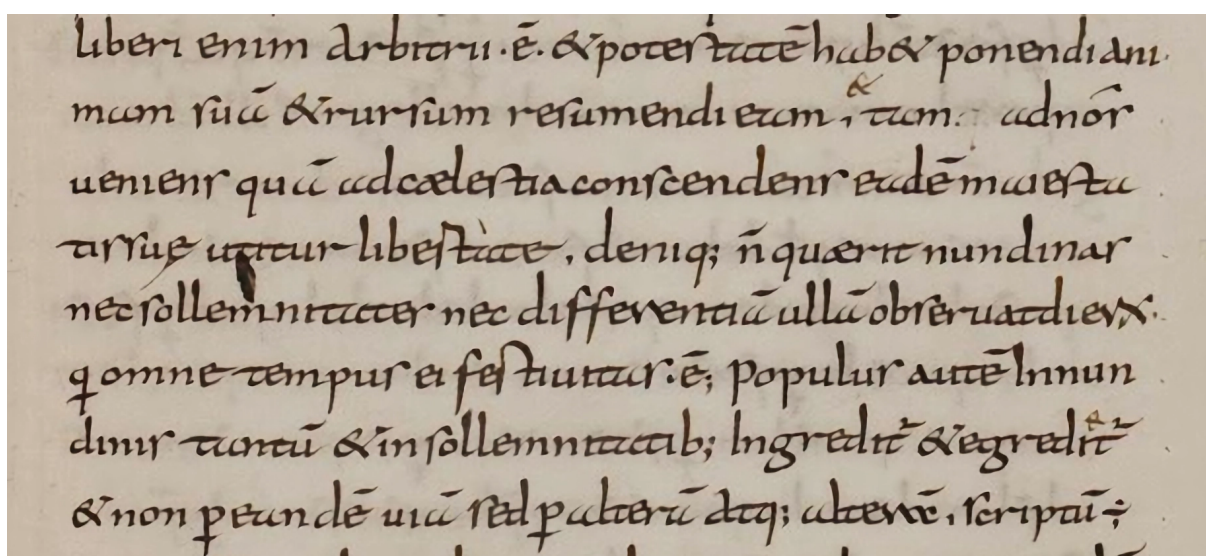 liberi enim arbitrii·ē· &potestatē hab& ponendi ani
mam suā &rursum resumendi eam, & tam adnos̄
ueniens quā adcælestia conscendens eadē maiesta
tis suę utitur libertate, deniq; n̄ quærit nundinas
nec sollemnitates nec differentiā ullā obseruat dierꝝ·
qͥ omne tempus ei festiuitas·ē; populus autē Innun
dinis tantū &in sollemnitatib; Ingredit᷑ &egredit᷑
&non ꝑ eandē uiā sed ꝑ alterā atq; alterā, scriptū ÷